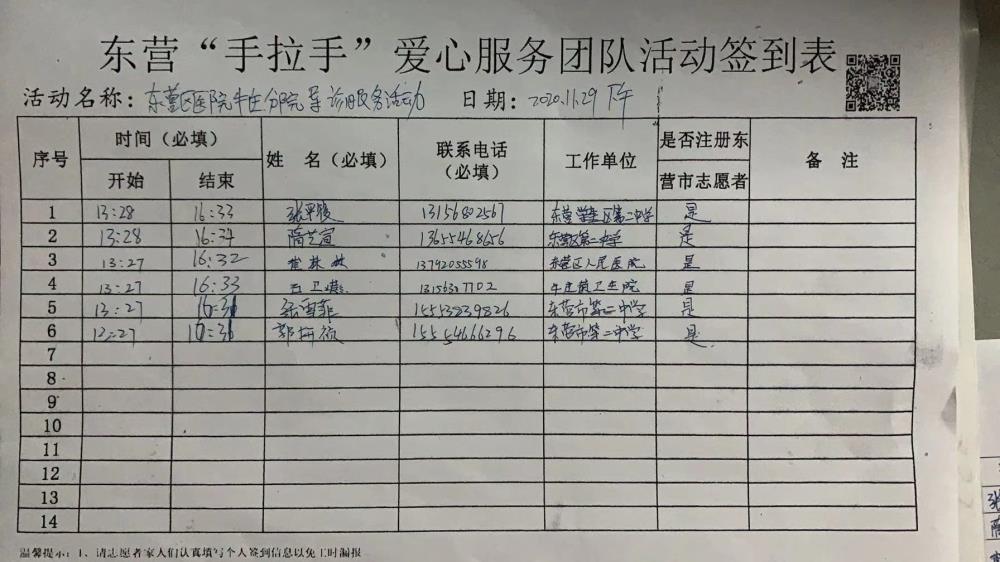 东营“手拉手”爱心服务团队活动签到表
活动名称：东营区医院牛庄分院导诊服务活动 日期：2020.11.29 下午
序号 时间（必填） 姓 名（必填） 联系电话（必填） 工作单位 是否注册东营市志愿者 备 注
开始 结束
1 13:28 16:33 13156802567 是
2 13:28 16:34 隋芝宣 13655468656 东营区第二中学 是
3 13:27 16:32 13792055598 东营区人民医院 是
4 13:27 16:33 石卫 牛庄镇卫生院 是
5 13:27 16:31 15553839826 东营市第二中学 是
6 16:31 郭 15554666296 东营市第二中学 是
7
8
9
10
11
12
13
14
温馨提示：1、请志愿者家人们认真填写个人签到信息以免工时漏报
张
隋